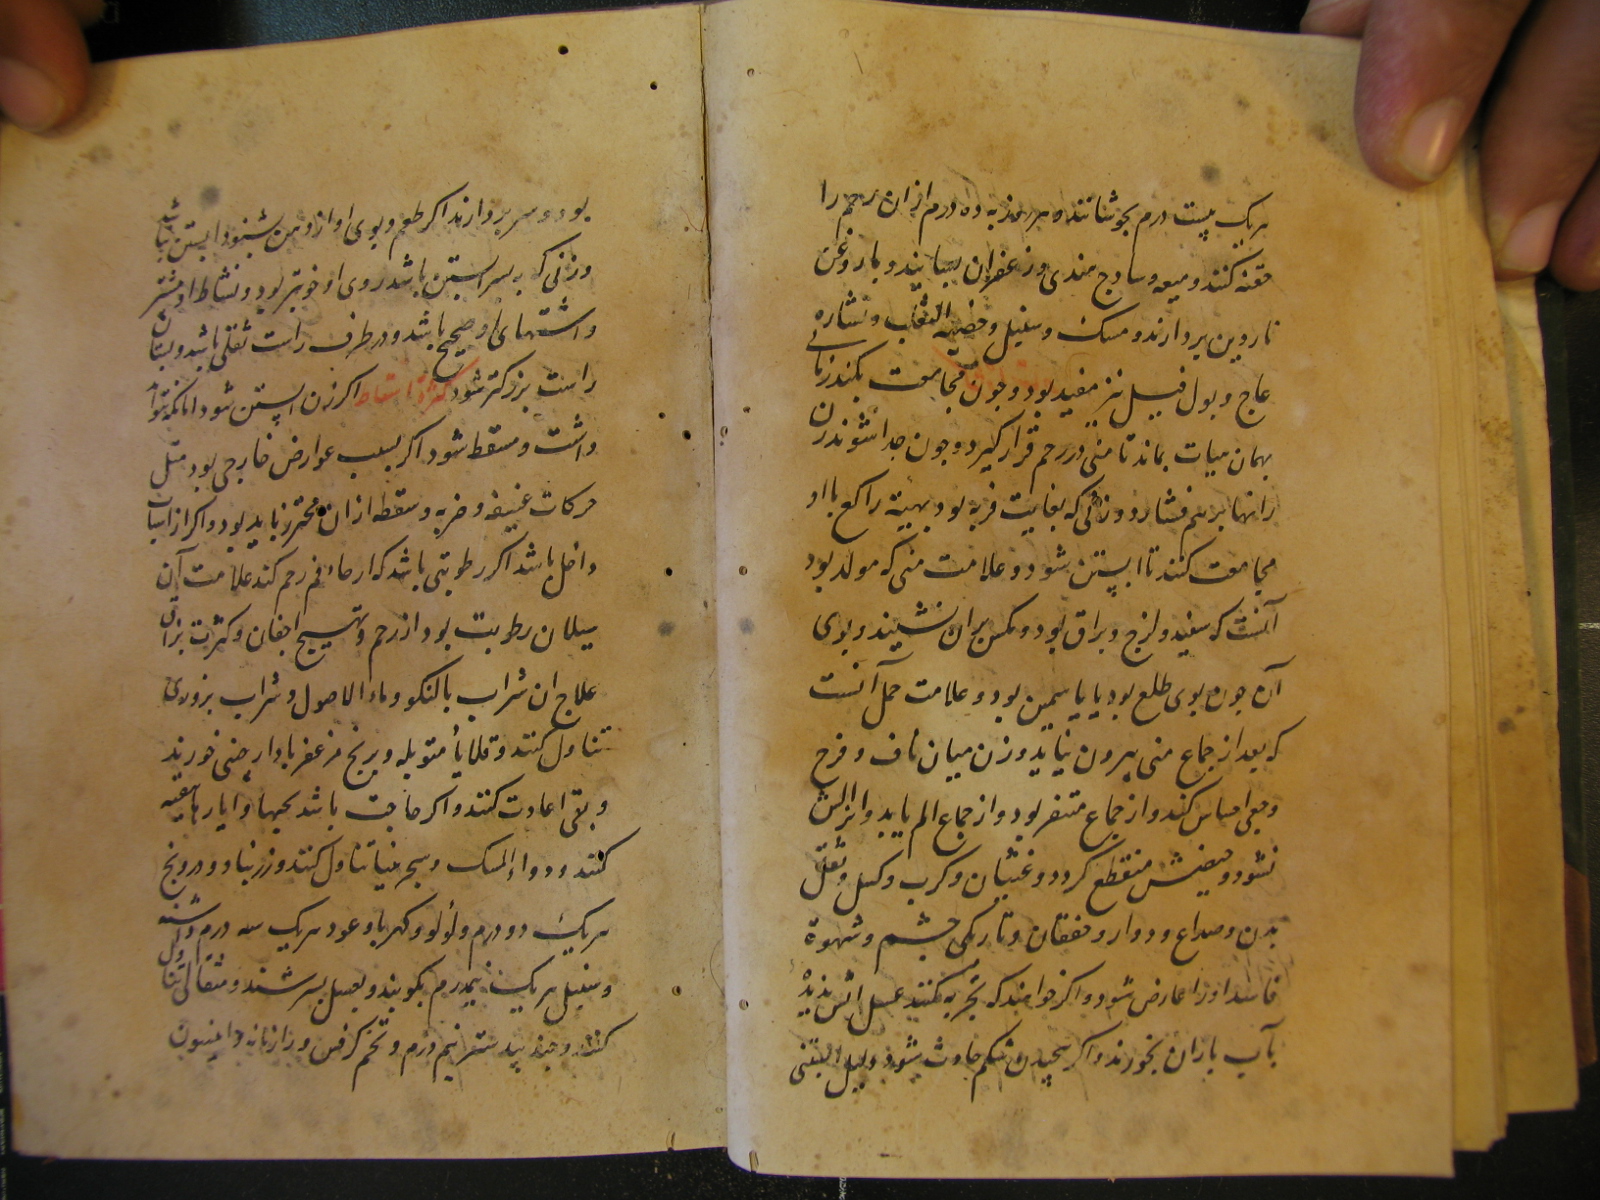 هریک بیست درم بجوشانند و هر روز به ده درم از ان رحم را
حقنه کنند و میعه و سادج هندی و زعفران بسایند و با روغن
ناردین بردارند و مسک و سنبل و خصیه الثعلب و نشاره
عاج و بول فیل نیز مفید بود و چون مجامعت بکند زمانی
بهمان هیات بماند تا منی در رحم قرار گیرد و چون جدا شوند زن
رانها بر هم فشارد و زنی که بغایت فربه بود بهیئة راکع با او
مجامعت کنند تا ابستن شود و علامت منی که مولد بود
آنست که سفید و لزج و براق بود و مکس بران نشیند و بوی
آن چون بوی طلع بود یا یاسمین بود و علامت حمل آنست
که بعد از جماع منی بیرون نیاید و زن میان ناف و فرج
وجعی احساس کند و از جماع متنفر بود و از جماع الم یابد و انزالش
نشود و حیضش منقطع کردد و غثیان و کرب و کسل و ثقل
بدن و صداع و دوار و خفقان و تاریکی چشم و شهوة
فاسد او را عارض شود و اکر خواهند که تجربه کنند عسل
بآب باران بخورند و اکر پیچیدن شکم حادث شود دلیل ابستنی
بود و سیر بردارند اکر طعم و بوی او از دهن بشنود ابستن نباشد
و زنی که به پسر ابستن باشد روی او خوبتر بود و نشاط او بیشتر
و اشتهای او صحیح باشد و در طرف راست ثقلی باشد و پستان
راست بزرکتر شود کثرة اسقاط اکر زن ابستن شود اما نکه نتواند
داشت و سقط شود اکر بسبب عوارض خارجی بود مثل
حرکات عنیفه و ضربه و سقطه از ان محترز باید بود و اکر از اسباب
داخل باشد اکر رطوبتی باشد که ارخاء فم رحم کند علامت آن
سیلان رطوبت بود از رحم و تهیج اجفان و کثرت بزاق
علاج ان شراب بالنکو و ماء الاصول و شراب بزوری
تناول کنند و قلایا متوبله و برنج مزعفر با دارچنی خورند
و بقی اعادت کنند و اکر حاجت باشد بحبها و ایارها تنقیه
کنند و دواء المسک و سجرینیا تناول کنند و زرنباد و درونج
هریک دو درم و لولو و کهربا و عود هریک سه درم و اشنه
و سنبل هریک نیمدرم بکوبند و بعسل بسرشند و مثقالی تناول
کنند و جندبیدستر نیم درم و تخم کرفس و رازیانه و انیسون